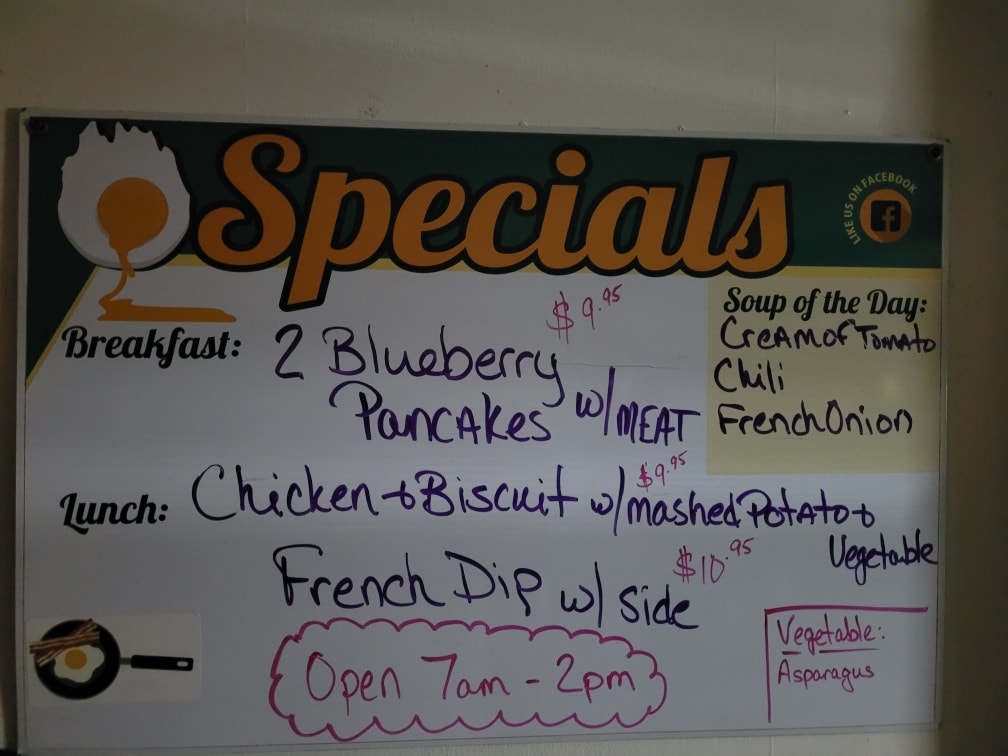 Specials
LIKE US ON FACEBOOK
f
$9.95
Breakfast: 2 Blueberry
Pancakes w/ MEAT
Soup of the Day:
Cream of Tomato
Chili
French Onion
$9.95
Lunch: Chicken + Biscuit w/ mashed Potato +
Vegetable
$10.95
French Dip w/ side
Open 7am - 2pm
Vegetable:
Asparagus